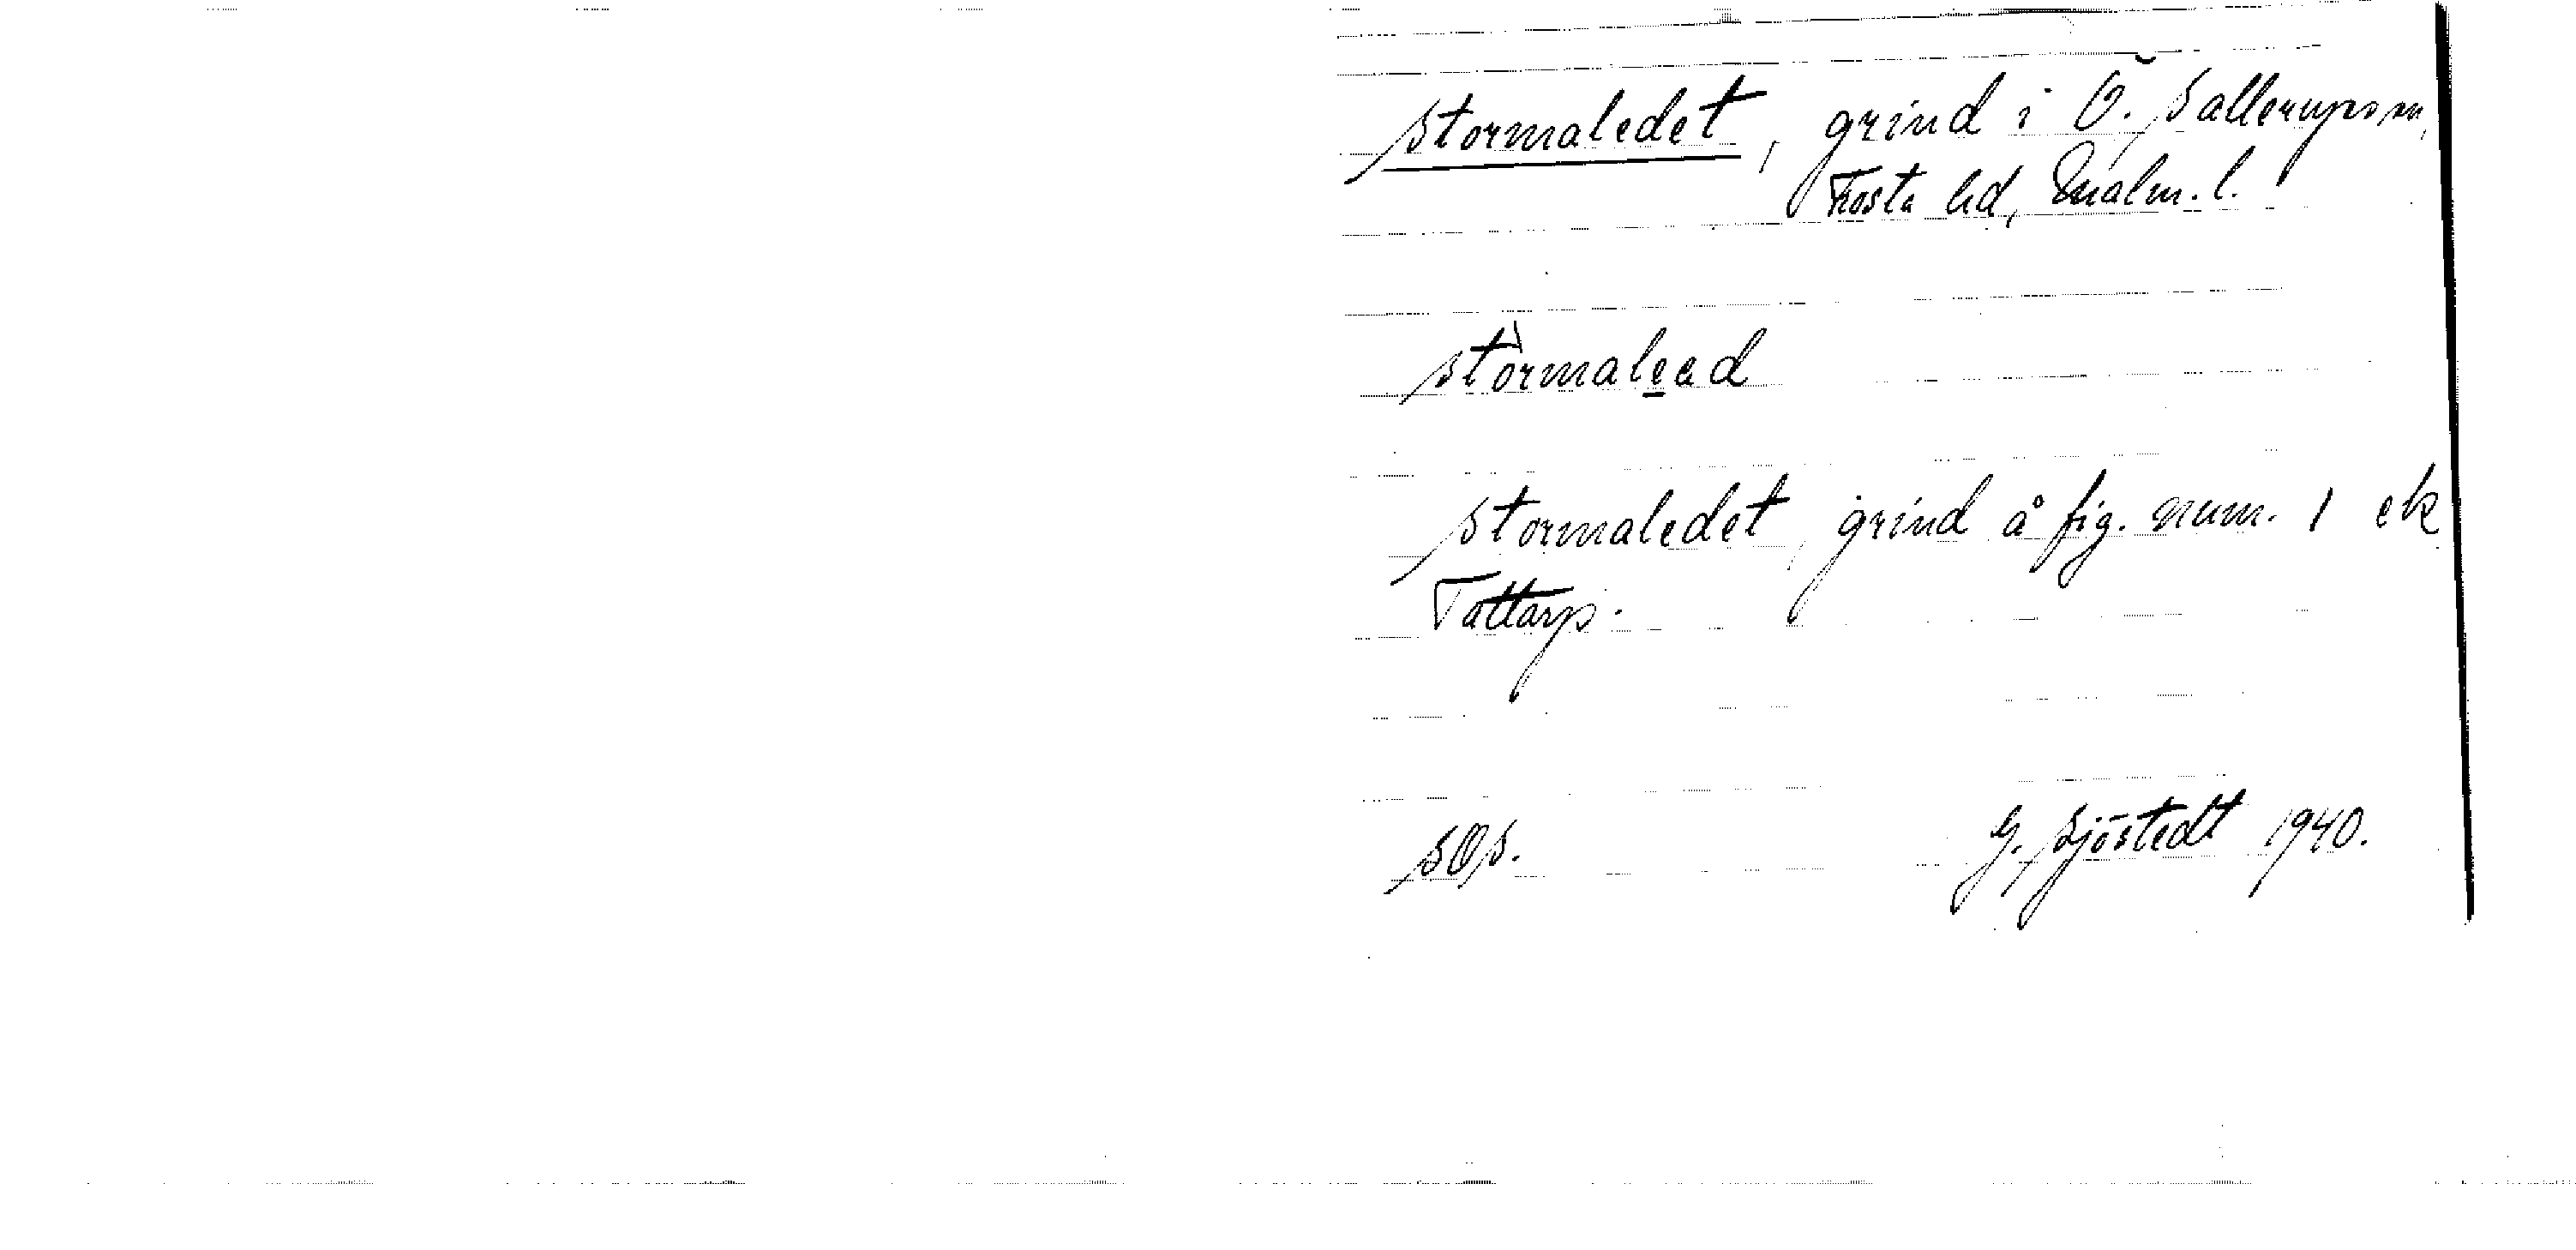 Stormaledet, grind i Ö. Sallerups sn,
Frosta hd, Malm. l.
stòrmaleəd
Stormaledet, grind å fig. num. 1 ek
Tattarp.
SOS.
G. Sjöstedt 1940.